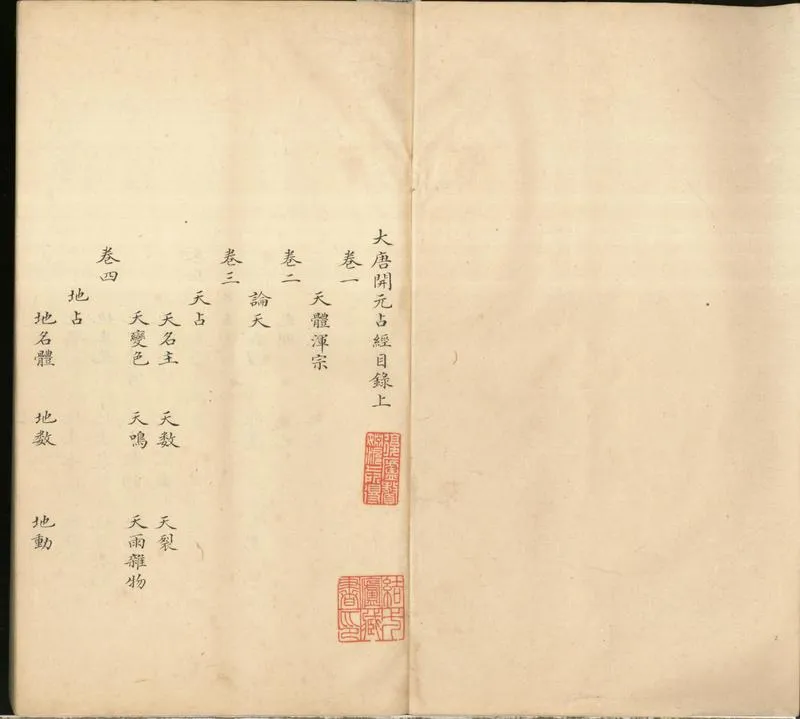 大唐開元占經目錄上
卷一
天體渾宗
卷二
論天
卷三
天占
天名主 天数 天裂
天變色 天鳴 天雨雜物
卷四
地占
地名體 地数 地動
結弌廬藏書印